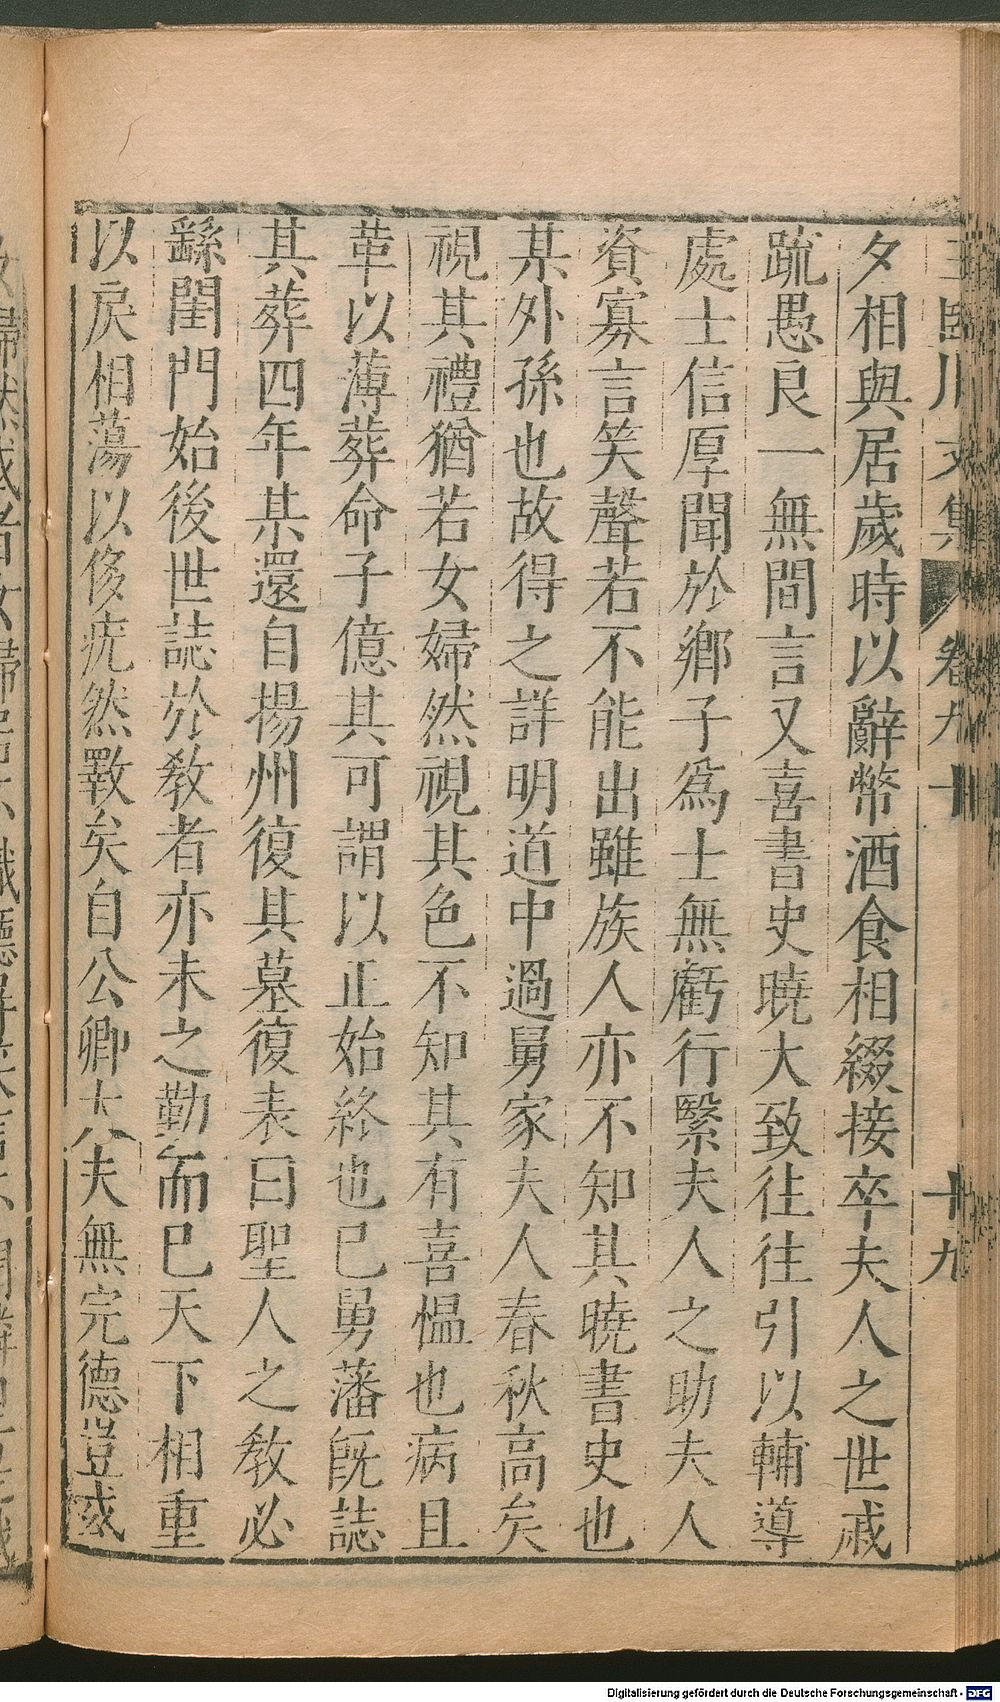 王臨川文集 卷九十 十九
夕相與居歲時以辭幣酒食相綴接卒夫人之世戚
疏愚良一無間言又喜書史曉大致往往引以輔導
處士信厚聞於鄉子爲士無虧行緊夫人之助夫人
資寡言笑聲若不能出雖族人亦不知其曉書史也
某外孫也故得之詳明道中過舅家夫人春秋高矣
視其禮猶若女婦然視其色不知其有喜慍也病且
革以薄葬命子億其可謂以正始終也已舅藩既誌
其葬四年某還自揚州復其墓復表曰聖人之教必
繇閨門始後世誌於教者亦未之勤而已天下相重
以戾相蕩以侈疣然斁矣自公卿大夫無完德豈或
Digitalisierung gefördert durch die Deutsche Forschungsgemeinschaft - DFG